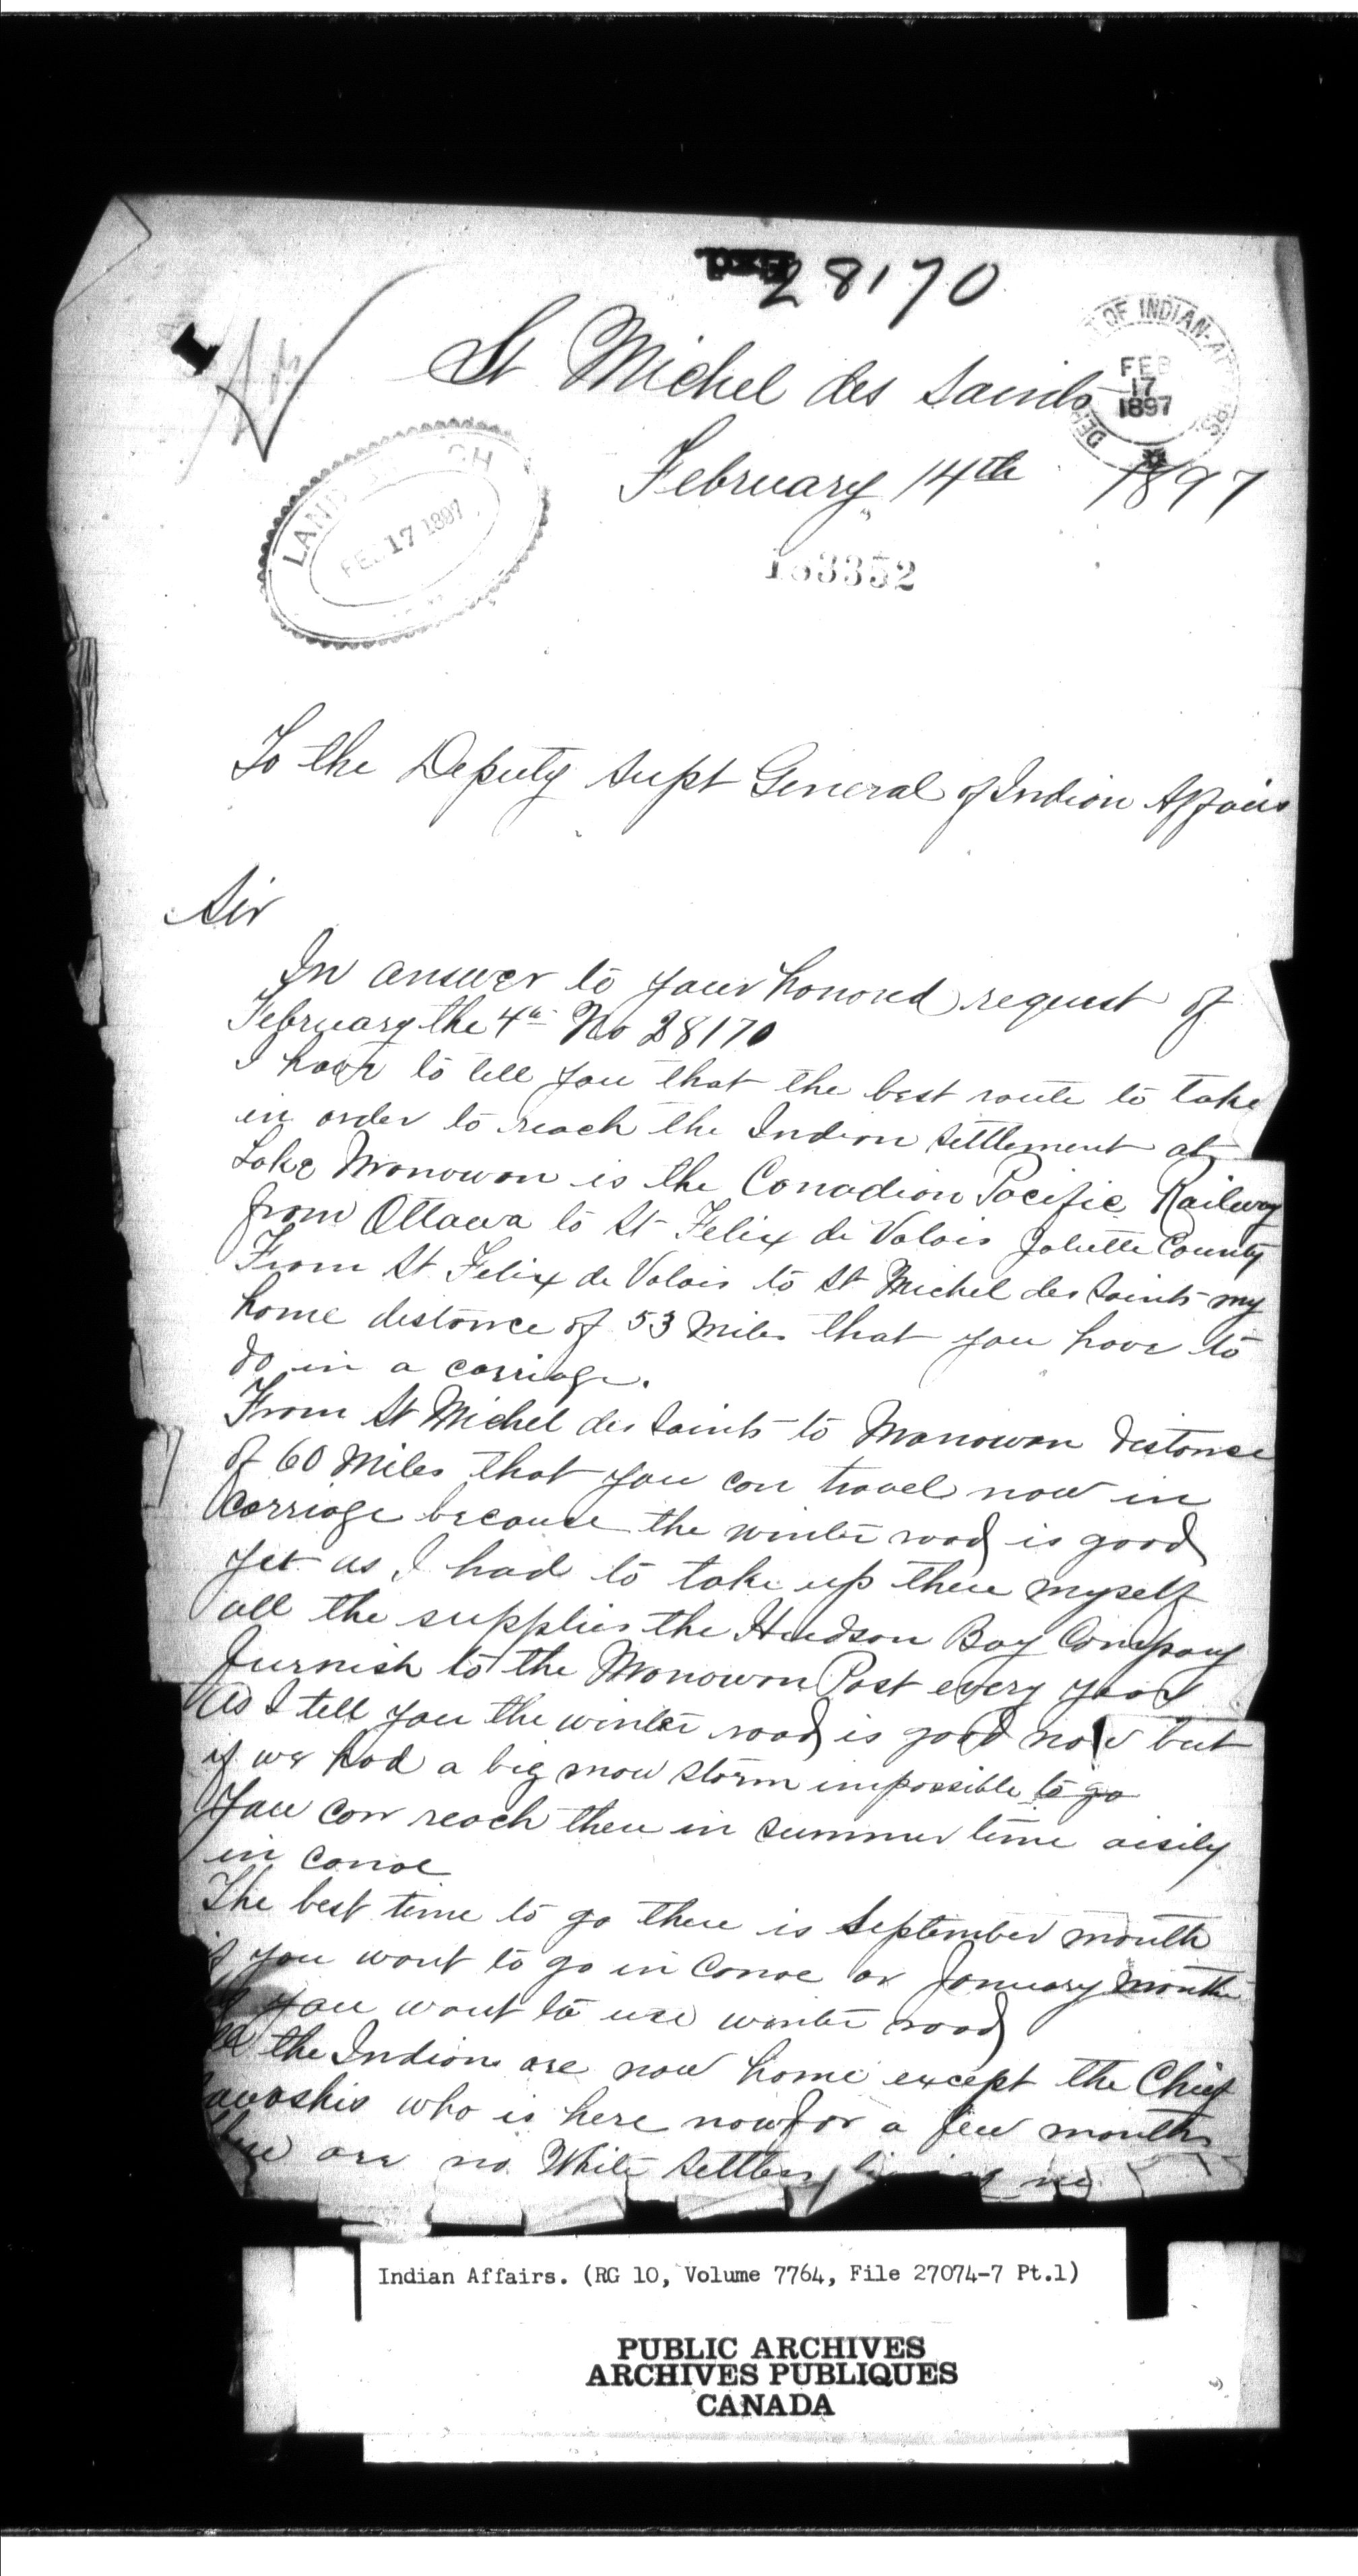 28170
St Michel des Saints
OF INDIAN
FEB
17
1897
February 14th 1897
LAND
FEB 17 1897
183352
To the Deputy Supt General of Indian Affairs
Sir
In answer to your honored request of
February the 4th No 28170
I have to tell you that the best route to take
in order to reach the Indian settlement at
Lake Manowan is the Canadian Pacific Railway
from Ottawa to St Felix de Valois Joliette County
From St Felix de Valois to St Michel des Saints my
home distance of 53 Miles that you have to
do in a carriage.
From St Michel des Saints to Manowan distance
of 60 Miles that you can travel now in
carriage because the winter road is good
yet as I had to take up there myself
all the supplies the Hudson Bay Company
furnish to the Manowan Post every year
As I tell you the winter road is good now but
if we had a big snow storm impossible to go
You can reach there in summer time aisily
in canoe
The best time to go there is September month
if you want to go in canoe or January month
you want to use winter road
the Indians are now home except the Chief
who is here now for a few months
are no White settlers
Indian Affairs. (RG 10, Volume 7764, File 27074-7 Pt.1)
PUBLIC ARCHIVES
ARCHIVES PUBLIQUES
CANADA